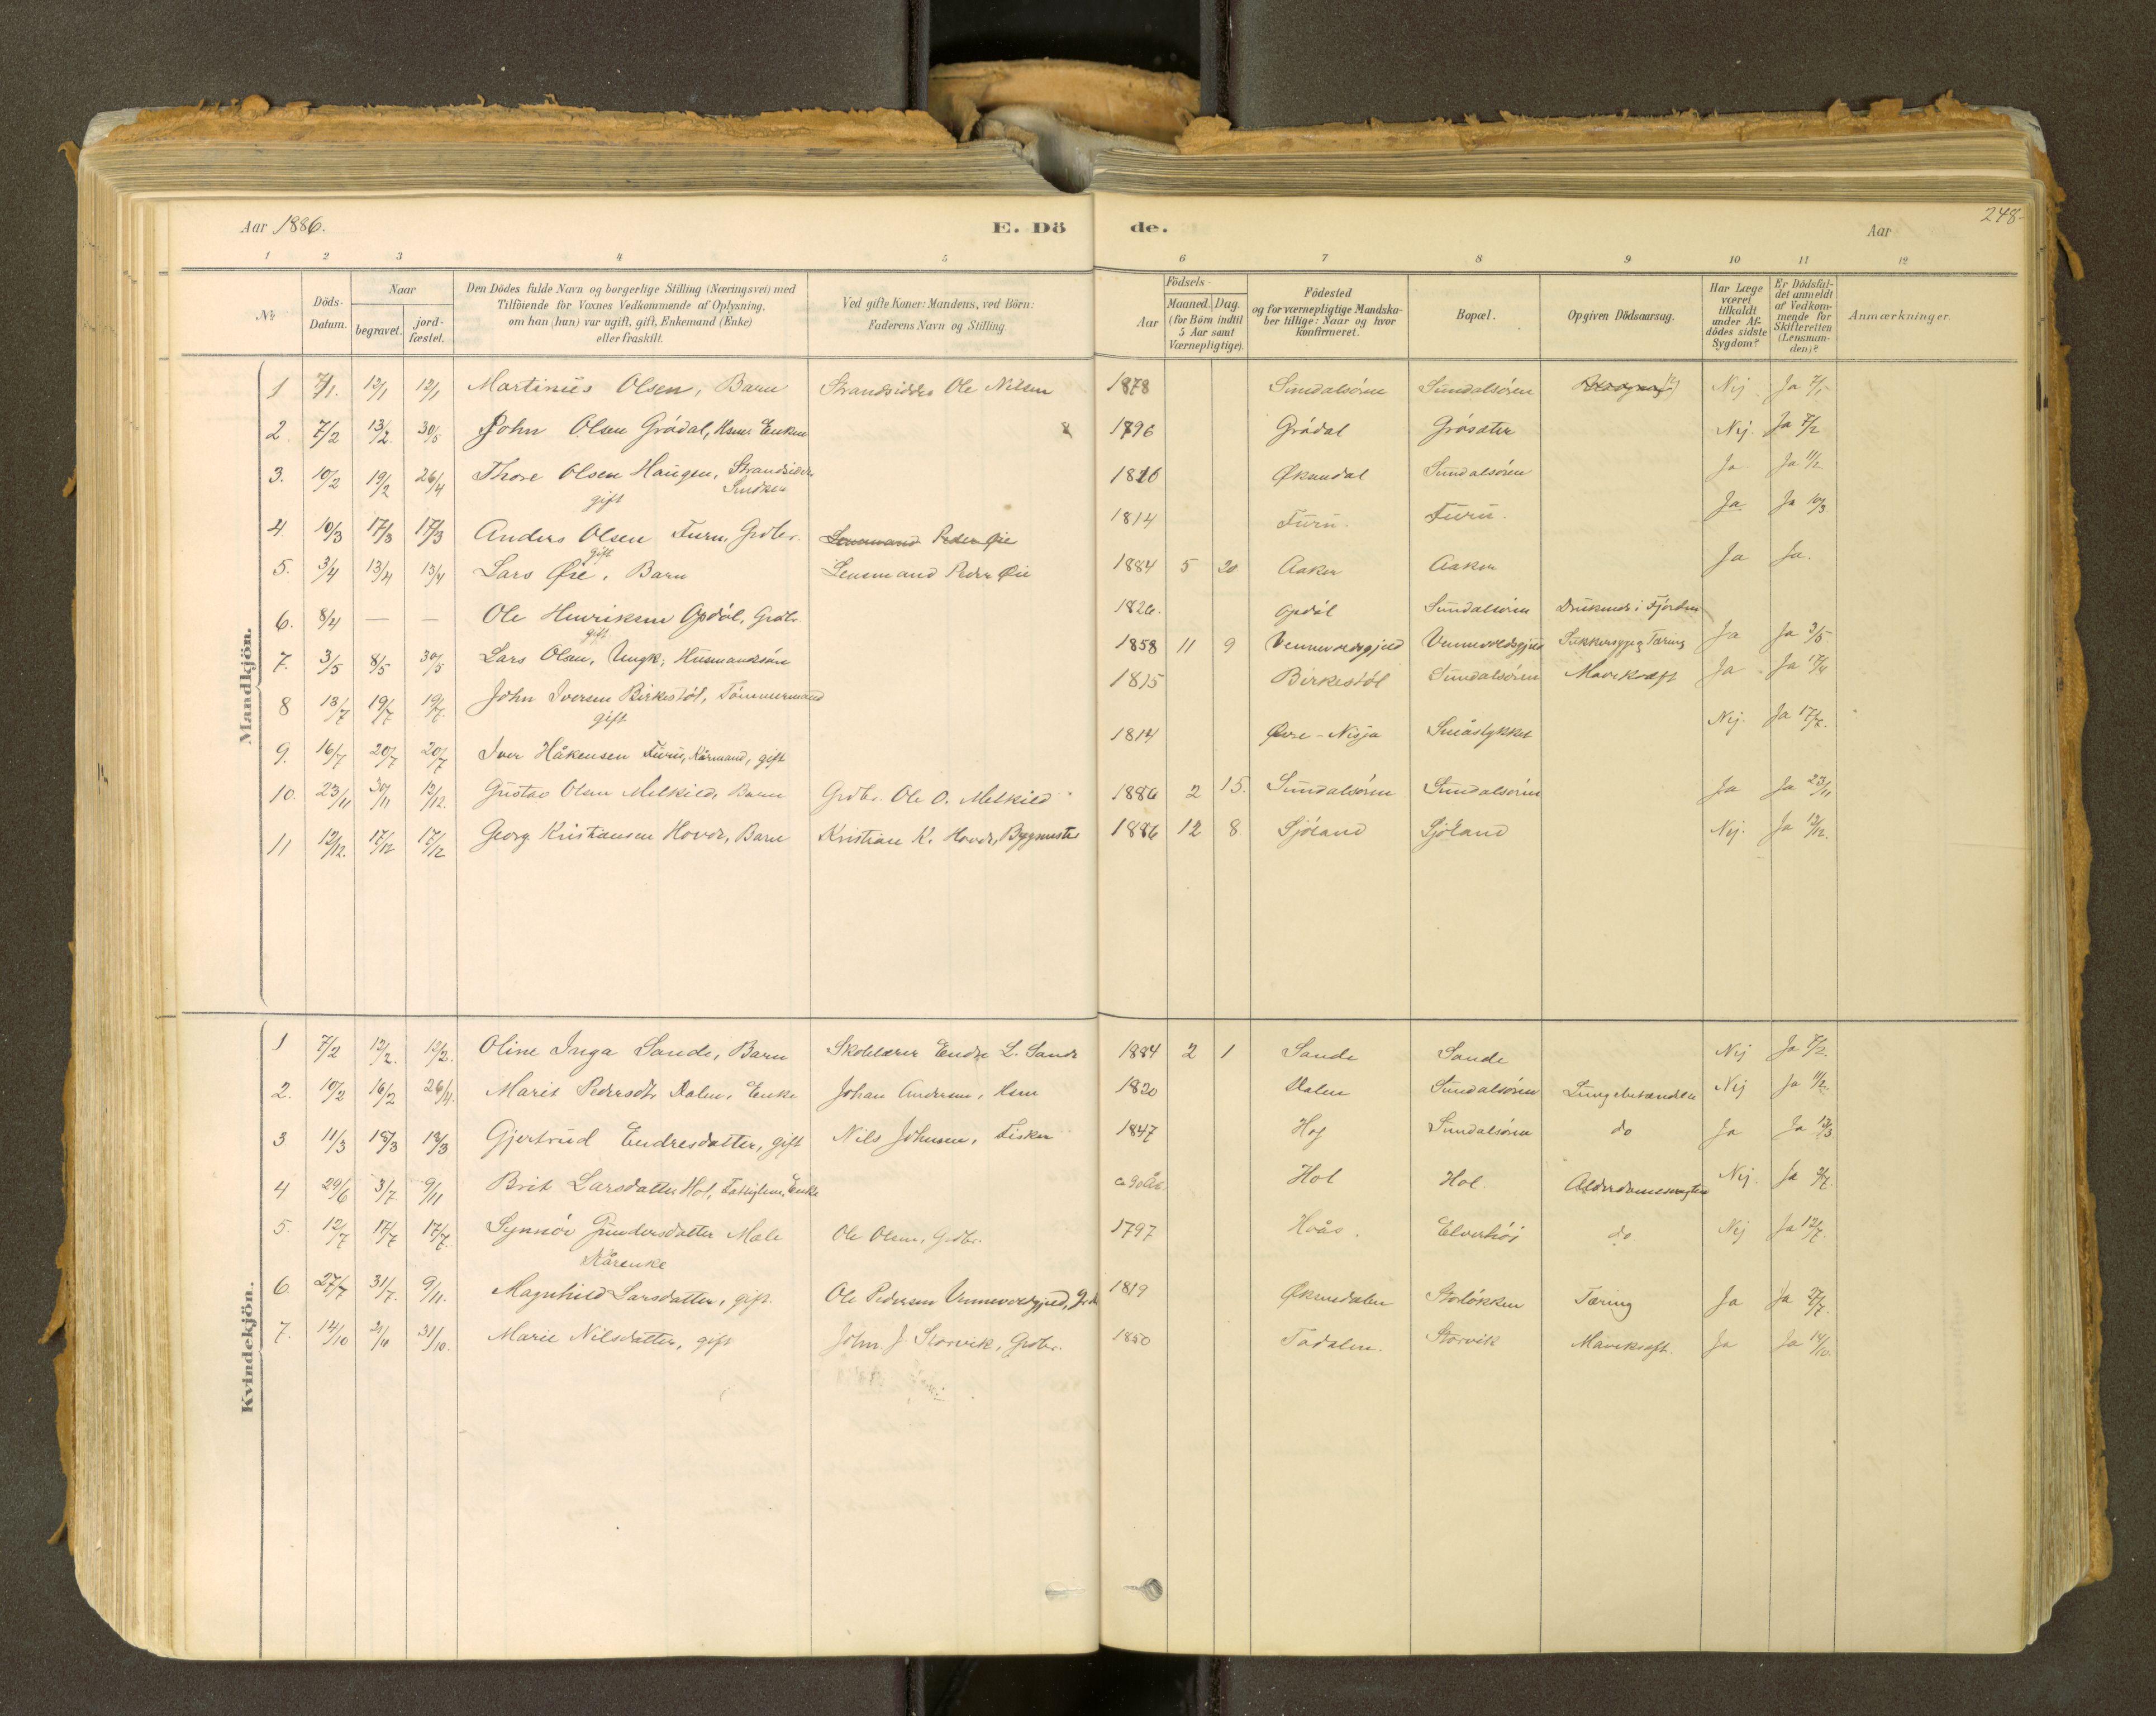 Aar 1886.
E. Dö de.
Aar
248.
1 2 3 4 5 6 7 8 9 10 11 12
No. Döds-Datum. Naar begravet. jord-fæstet. Den Dödes fulde Navn og borgerlige Stilling (Næringsvei) med Tilföiende for Voxnes Vedkommende af Oplysning, om han (hun) var ugift, gift, Enkemand (Enke) eller fraskilt. Ved gifte Koner: Mandens, ved Börn: Faderens Navn og Stilling. Aar Födsels- Maaned. Dag. (for Börn indtil 5 Aar samt Værnepligtige). Födested og for værnepligtige Mandskaber tillige: Naar og hvor konfirmeret. Bopæl. Opgiven Dödsaarsag. Har Læge været tilkaldt under Afdödes sidste Sygdom? Er Dödsfaldet anmeldt af Vedkommende for Skifteretten (Lensmanden)? Anmærkninger.
Mandkjön.
1 7/1. 12/1 12/1 Martinus Olsen, Barn Strandsidder Ole Nilsen 1878 Sundalsören Sundalsören Nej Ja 7/1
2. 7/2 13/2. 30/5 John Olsen Grödal, Husm. Enkem 1796 Grödal Grösæter Nej. Ja 7/2
3. 10/2 19/2 26/4 Thore Olsen Haugen, Strandsidder gift 1820 Øksendal Sundalsören Ja Ja 11/2
4. 10/3 17/3 17/3 Anders Olsen Furu, Grdbr. gift Lensmand Peder Øie 1814 Furu. Furu. Ja Ja 10/3
5. 3/4 13/4 13/4 Lars Øie, Barn Lensmand Peder Øie 1884 5 20 Aaker Aaker Ja Ja.
6. 8/4 — — Ole Henriksen Opdöl, Grdbr. gift 1826. Opdöl Sundalsören Druknede i Fjorden
7. 3/5 8/5 30/5 Lars Olsen, Ungk, Husmandssön 1858 11 9 Vennevoldsgjerd Vennevoldsgjerd Sukkersyge, Tæring Ja Ja 3/5
8 13/7 19/7 19/7. John Iversen Birkestöl, Tömmermand gift 1815 Birkestöl Sundalsören Mavekræft Ja Ja
9. 16/7 20/7 20/7 Iver Håkensen Furu, Kårmand, gift 1814 Övre-Nisja Småstykket Nej. Ja 17/7.
10. 23/11 30/11 12/12. Gustav Olsen Melkild, Barn Grdbr. Ole O. Melkild 1886 2 15. Sundalsören Sundalsören Ja Ja 23/11
11 12/12. 17/12 17/12 Georg Kristiansen Hovde, Barn Kristian K. Hovde, Bygmester 1886 12 8 Sjöland Sjöland Nej. Ja 12/12.
Kvindekjön.
1 7/2 12/2. 12/2. Oline Inga Sande, Barn Skolelærer Endre L. Sande 1884 2 1 Sande Sande Nej Ja 7/2.
2. 10/2 16/2 26/4. Marit Pedersdt. Dalen, Enke Johan Andersen, Hsm 1820 Dalen Sundalsören Lungebetændelse Nej Ja 11/2.
3 11/3 18/3 18/3 Gjertrud Endresdatter, gift Nils Johnsen, Fisker 1847 Hof Sundalsören do Ja Ja 12/3
4 29/6 3/7 9/11 Brit Larsdatter Hol, Fattiglem, Enke Hol Hol Alderdomssvaghed Nej. Ja
5. 12/7 17/7 17/7. Synnöv Gundersdatter Mæle Kårenke Ole Olsen, Grdbr. 1797 Hoås. Elverhöi do Nej Ja 12/7.
6. 27/7 31/7. 9/11. Magnhild Larsdatter, gift. Ole Pedersen Vennevoldgjerd, 1819 Øksendalen Storlökken Tæring Ja Ja 27/7.
7. 14/10 21/10 31/10. Marie Nilsdatter, gift John. J. Storvik, Grdbr. 1850 Todalen. Storvik Mavekræft. Ja Ja 14/10